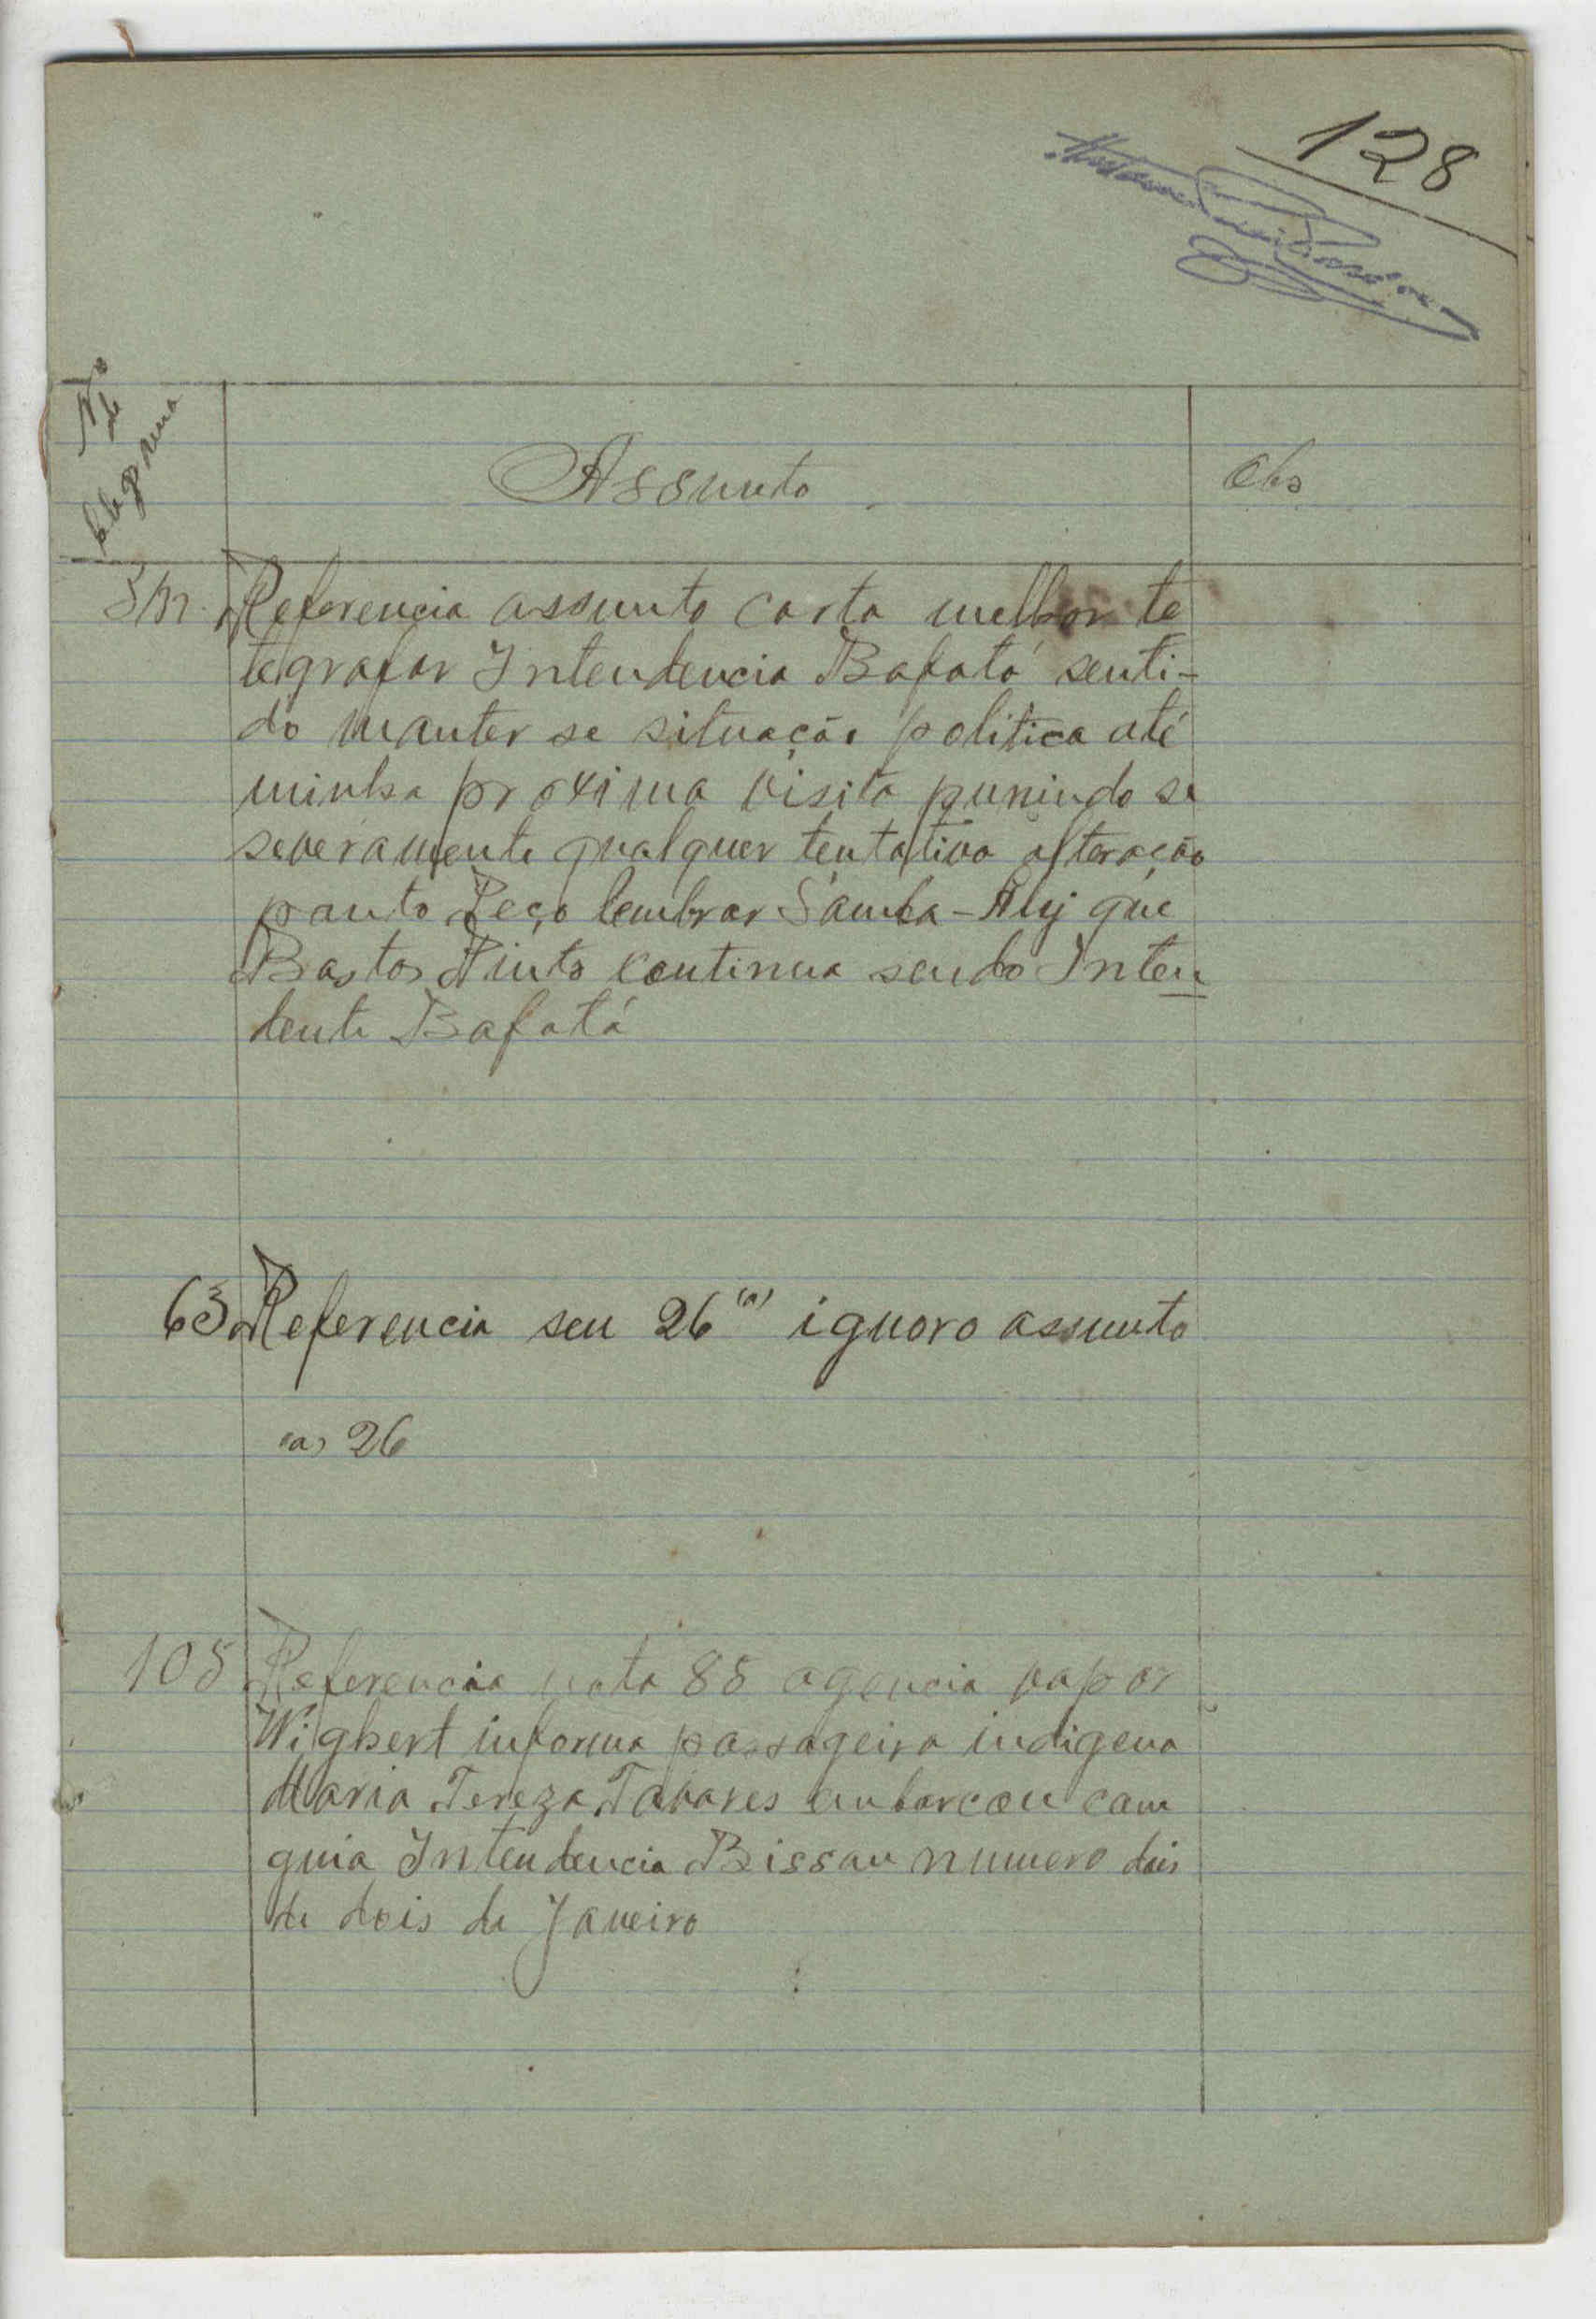 128
Nº de telegrama
Assunto
Obs
S/n. Referencia assunto carta melhor te
legrafar Intendencia Bafatá senti-
do manter se situação politica até
minha proxima visita punindo se
severamente qualquer tentativa alteração
ponto Peço lembrar Samba-Aly que
Bastos Pinto continua sendo Inten
dente Bafatá
63 Referencia seu 26 (a) ignoro assunto
(a) 26
105 Referencia nota 85 agencia vapor
Wigbert informa passageira indigena
Maria Tereza Tavares embarcou com
guia Intendencia Bissau numero dois
de dois de Janeiro